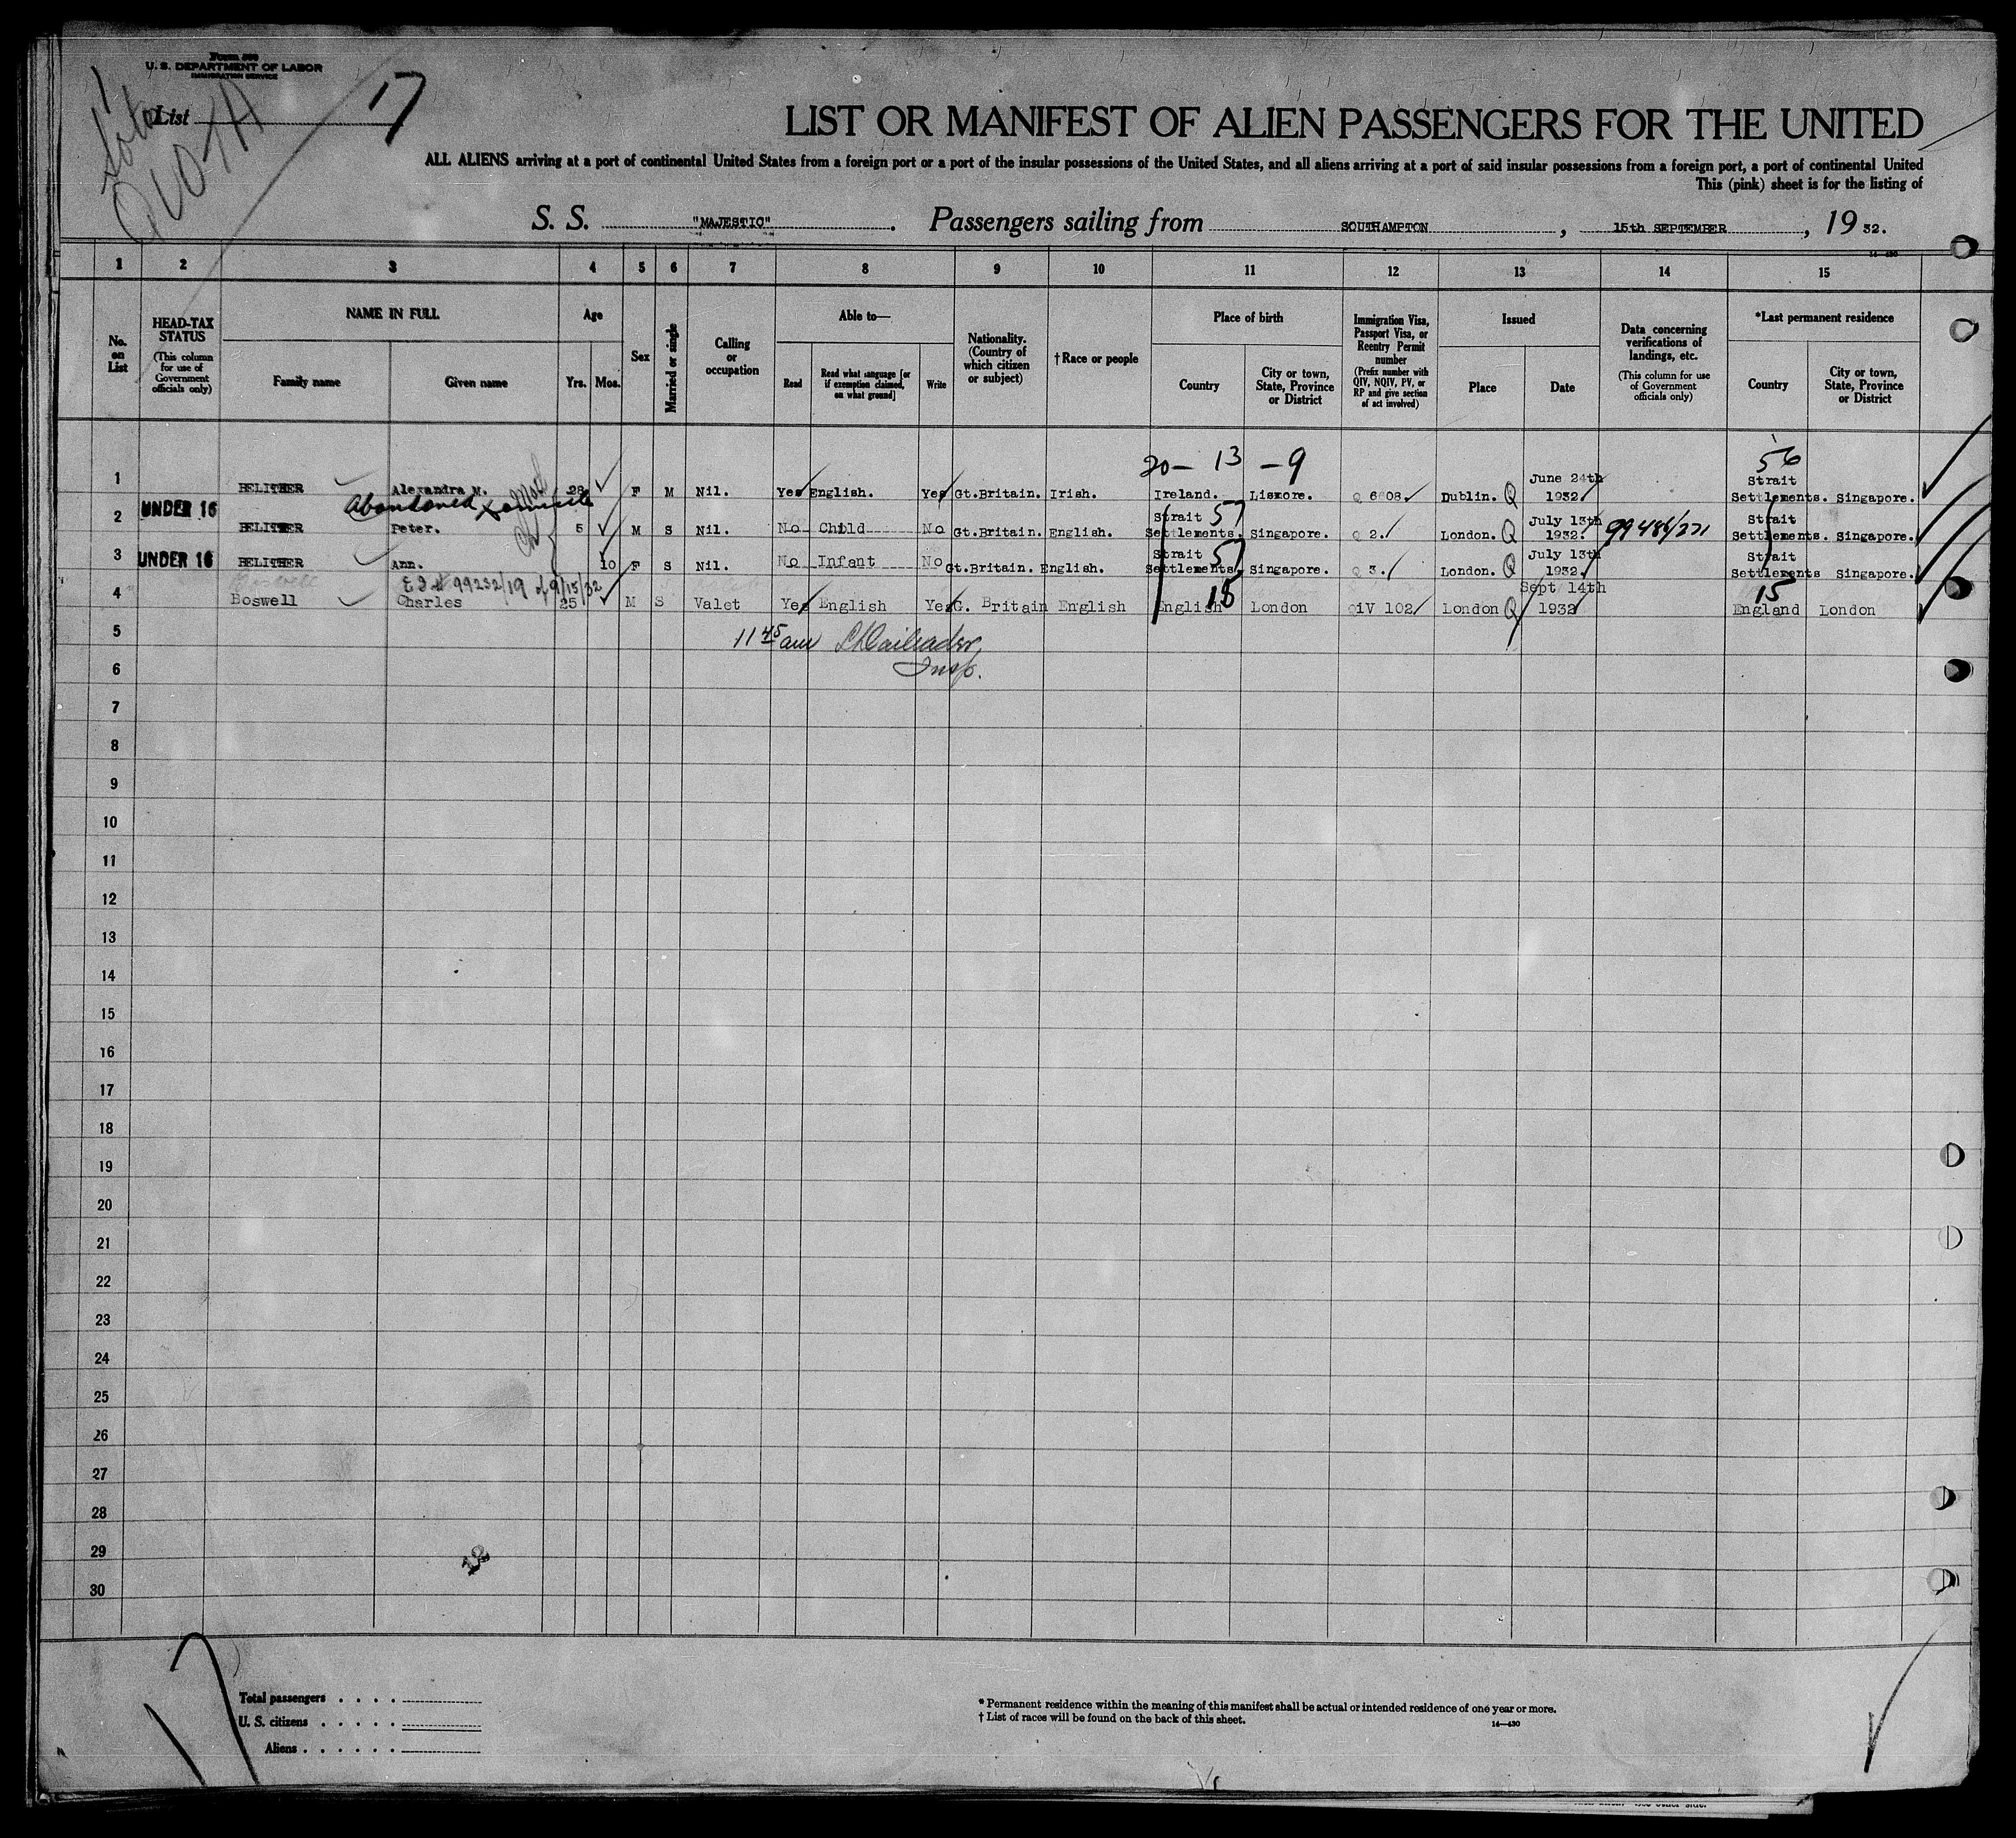 Form 500
U. S. DEPARTMENT OF LABOR
IMMIGRATION SERVICE
List 17
QUOTA
LIST OR MANIFEST OF ALIEN PASSENGERS FOR THE UNITED
ALL ALIENS arriving at a port of continental United States from a foreign port or a port of the insular possessions of the United States, and all aliens arriving at a port of said insular possessions from a foreign port, a port of continental United
This (pink) sheet is for the listing of
S. S. "MAJESTIC". Passengers sailing from SOUTHAMPTON, 15th SEPTEMBER, 1932.
14—430
1 2 3 4 5 6 7 8 9 10 11 12 13 14 15
No. on List
HEAD-TAX STATUS (This column for use of Government officials only)
NAME IN FULL
Family name Given name
Age
Yrs. Mos.
Sex
Married or single
Calling or occupation
Able to—
Read Read what language [or if exemption claimed, on what ground] Write
Nationality. (Country of which citizen or subject)
†Race or people
Place of birth
Country City or town, State, Province or District
Immigration Visa, Passport Visa, or Reentry Permit number (Prefix number with QIV, NQIV, PV, or RP and give section of act involved)
Issued
Place Date
Data concerning verifications of landings, etc. (This column for use of Government officials only)
*Last permanent residence
Country City or town, State, Province or District
20— 13 —9 56
1 BELITHER Alexandra M. 28 F M Nil. Yes English. Yes Gt.Britain. Irish. Ireland. Lismore. Q 6608. Dublin. Q June 24th 1932. Strait Settlements. Singapore.
Abandoned
2 UNDER 16 BELITHER Peter. 5 M S Nil. No Child No Gt.Britain. English. Strait Settlements. 57 Singapore. Q 2. London. Q July 13th 1932. 99486/271 Strait Settlements. Singapore.
3 UNDER 16 BELITHER Ann. 10 F S Nil. No Infant No Gt.Britain. English. Strait Settlements. 57 Singapore. Q 3. London. Q July 13th 1932. Strait Settlements. Singapore.
99232/19 of 9/15/32
4 Boswell Charles 25 M S Valet Yes English Yes G. Britain English English 15 London QiV 102 London Q Sept 14th 1932 15 England London
11 45 am
Insp.
5
6
7
8
9
10
11
12
13
14
15
16
17
18
19
20
21
22
23
24
25
26
27
28
29
30
12
Total passengers . . . .
U. S. citizens . . . . .
Aliens . . . . . .
* Permanent residence within the meaning of this manifest shall be actual or intended residence of one year or more.
† List of races will be found on the back of this sheet.
14—430